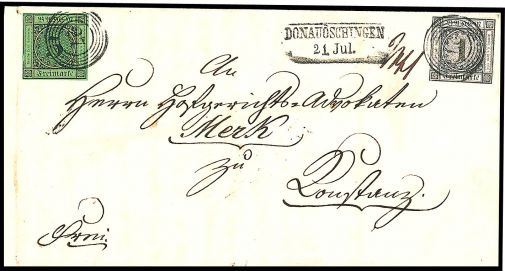 DONAUÖSCHINGEN
21. Jul.
Freimarke
Freimarke
An
Herrn Hofgerichts-Advokaten
Merk
zu
Constanz.
Frei.